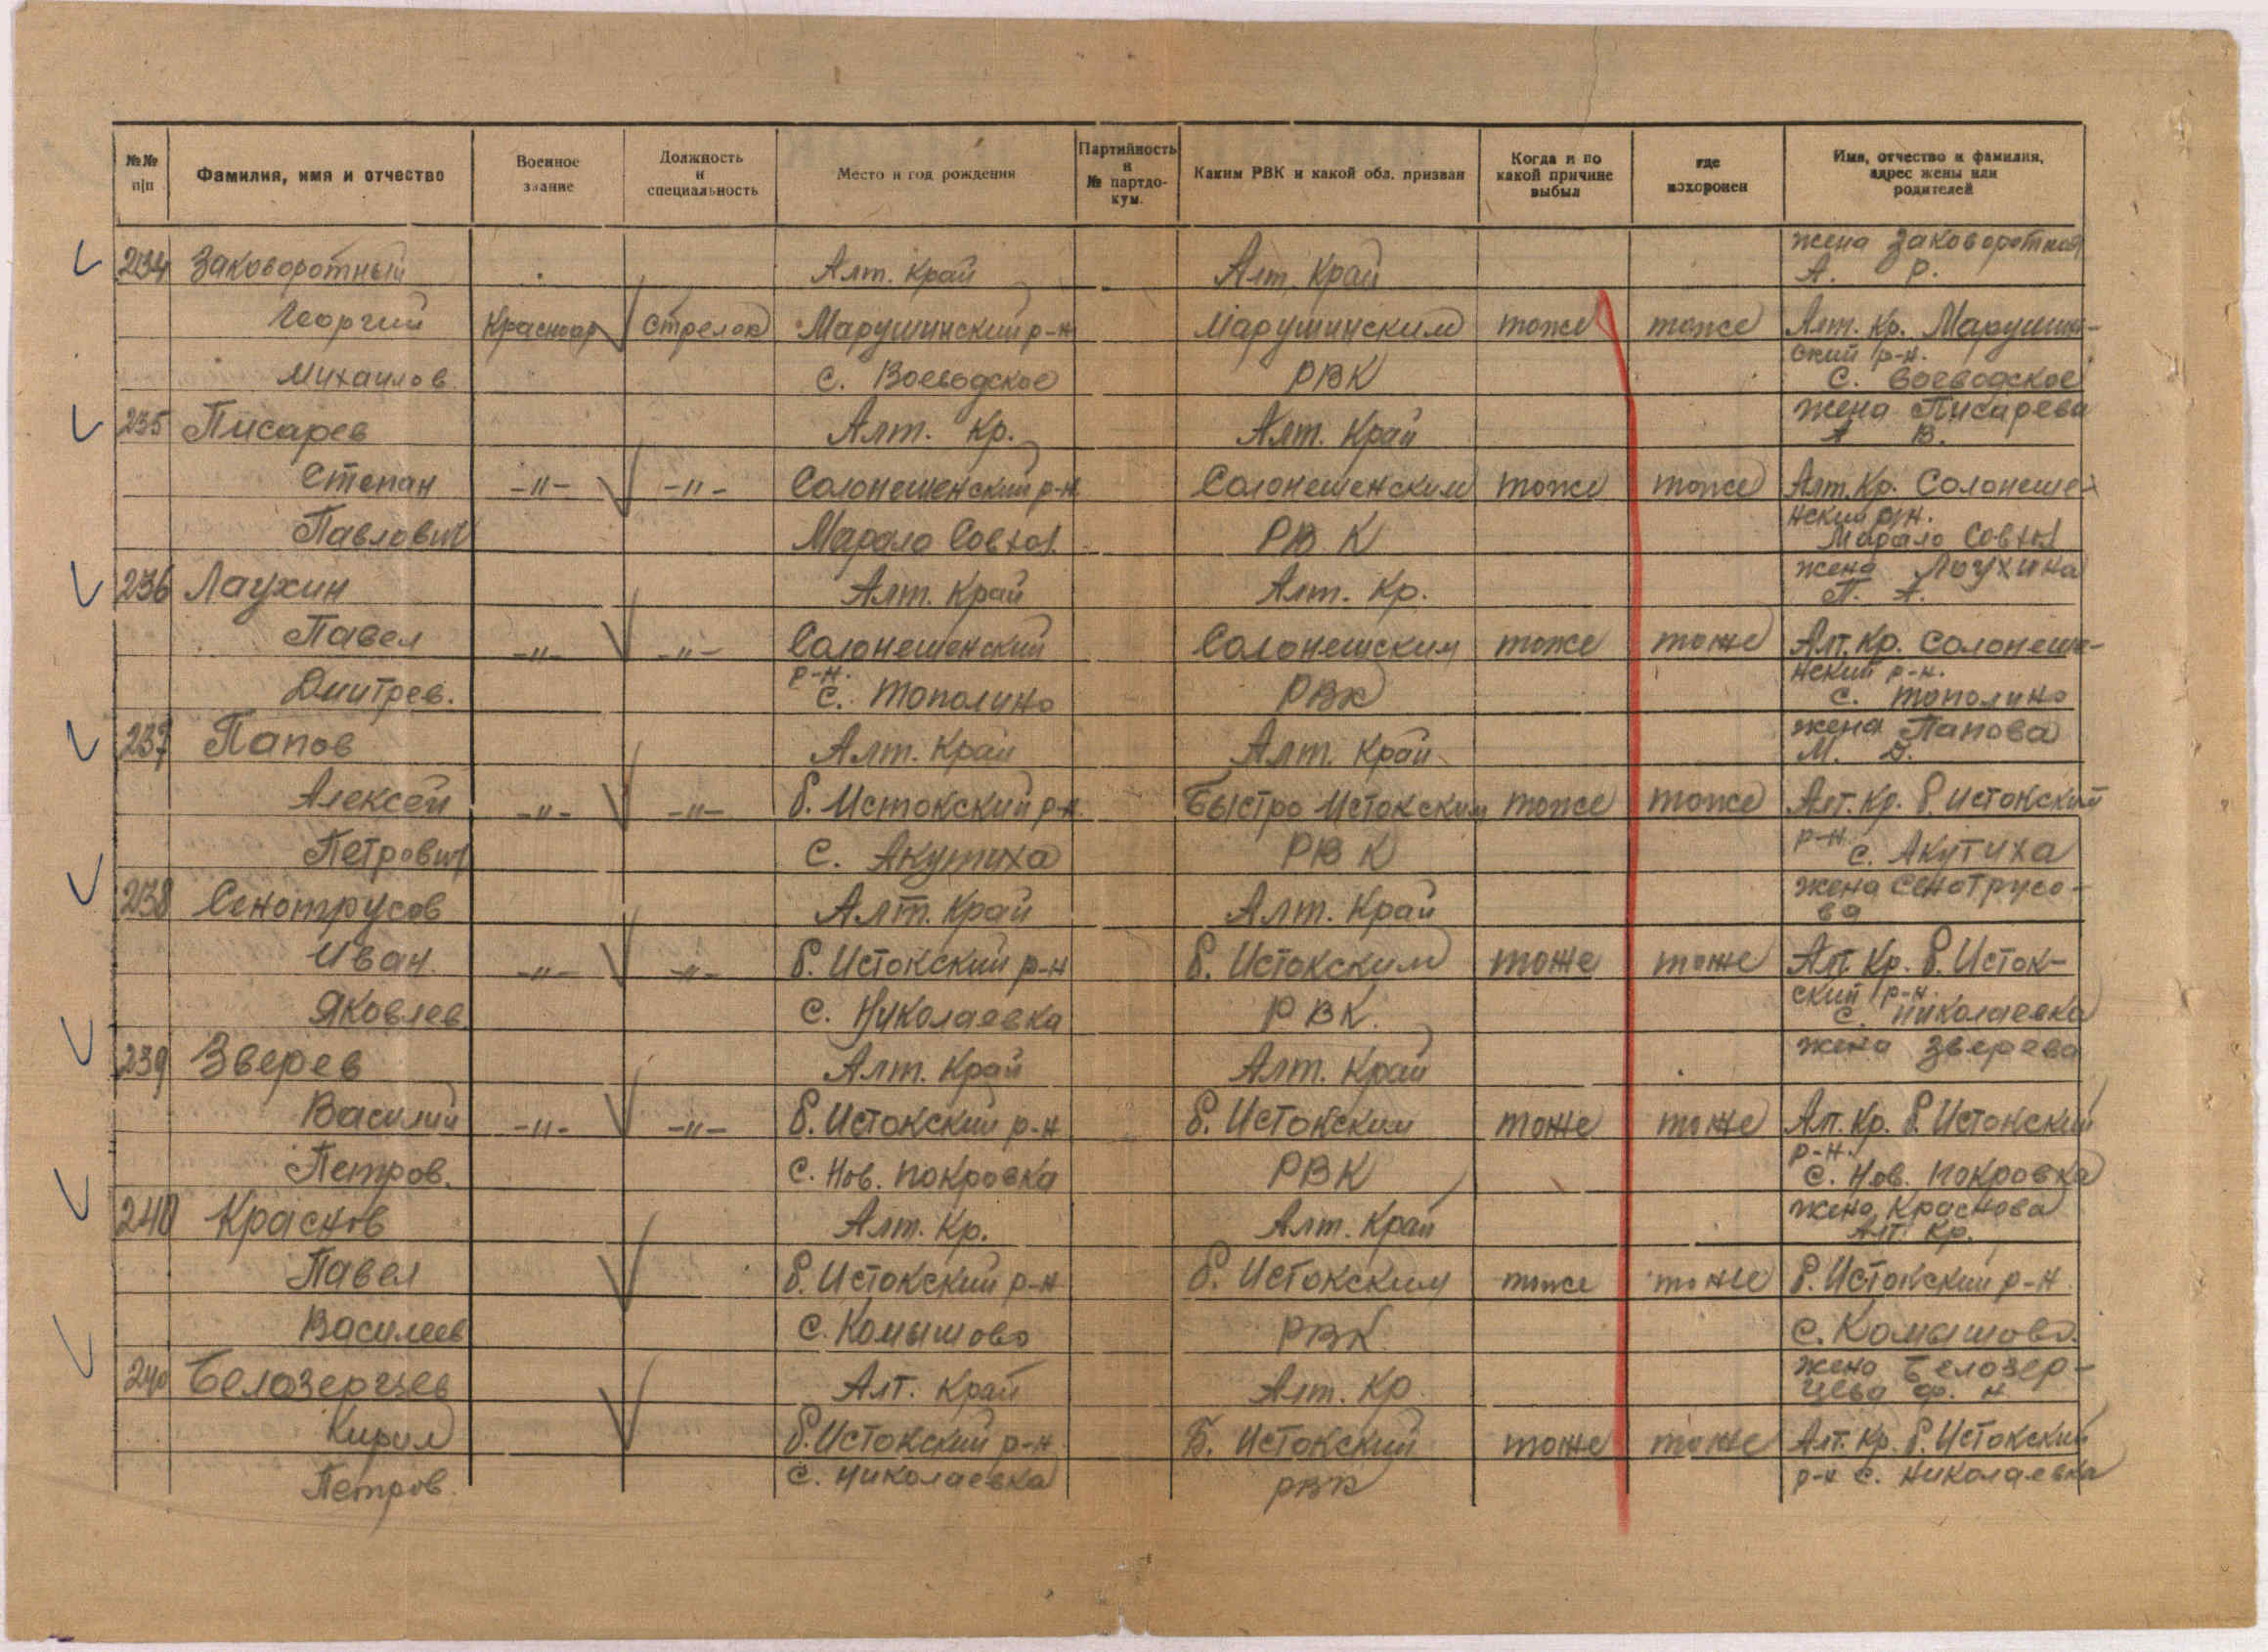 №№ п/п
Фамилия, имя и отчество
Военное звание
Должность и специальность
Место и год рождения
Партийность и № партдокум.
Каким РВК и какой обл. призван
Когда и по какой причине выбыл
где похоронен
Имя, отчество и фамилия, адрес жены или родителей
жена Заковоротная
234 Заковоротный Алт. Край Алт. Край А. Р.
Георгий Красноар Стрелок Марушинский р-н Марушинским тоже тоже Алт. Кр. Марушин-
ский р-н.
Михайлов. с. Воеводское РВК с. Воеводское
жена Писарева
235 Писарев Алт. Кр. Алт. Край А В.
Степан -"- -"- Солонешенский р-н Солонешенским тоже тоже Алт. Кр. Солонеше-
нский р/н.
Павлович Марало Совхоз РВК Марало Совхоз
жена Лаухина
236 Лаухин Алт. Край Алт. Кр. П. А.
Павел -"- -"- Солонешенский Солонешским тоже тоже Алт. Кр. Солонеше-
р-н. нский р-н.
Дмитрев. с. Тополино РВК с. Тополино
жена Папова
237 Папов Алт. Край Алт. Край М. Д.
Алексей -"- -"- б. Истокский р-н. Быстро Истокским тоже тоже Алт. Кр. б. Истокский
Петрович с. Акутиха РВК р-н с. Акутиха
жена Сенотрусо-
238 Сенотрусов Алт. Край Алт. Край ва
Иван -"- -"- б. Истокский р-н б. Истокским тоже тоже Алт. Кр. б. Исток-
ский р-н.
Яковлев с. Николаевка РВК. с. Николаевка
жена Зверева
239 Зверев Алт. Край Алт. Край
Василий -"- -"- б. Истокский р-н б. Истокским тоже тоже Алт. Кр. б. Истокский
р-н.
Петров. с. Нов. Покровка РВК с. Нов. Покровка
жена Краснова
240 Краснов Алт. Кр. Алт. Край Алт. Кр.
Павел б. Истокский р-н б. Истокским тоже тоже б. Истокский р-н
Василев с. Комышово РВК с. Комышово.
жена Белозер-
240 Белозерцев Алт. Край Алт. Кр. цева Ф. Н.
Кирил б. Истокский р-н Б. Истокский тоже тоже Алт. Кр. б. Истокский
Петров. с. Николаевка РВК р-н с. Николаевка